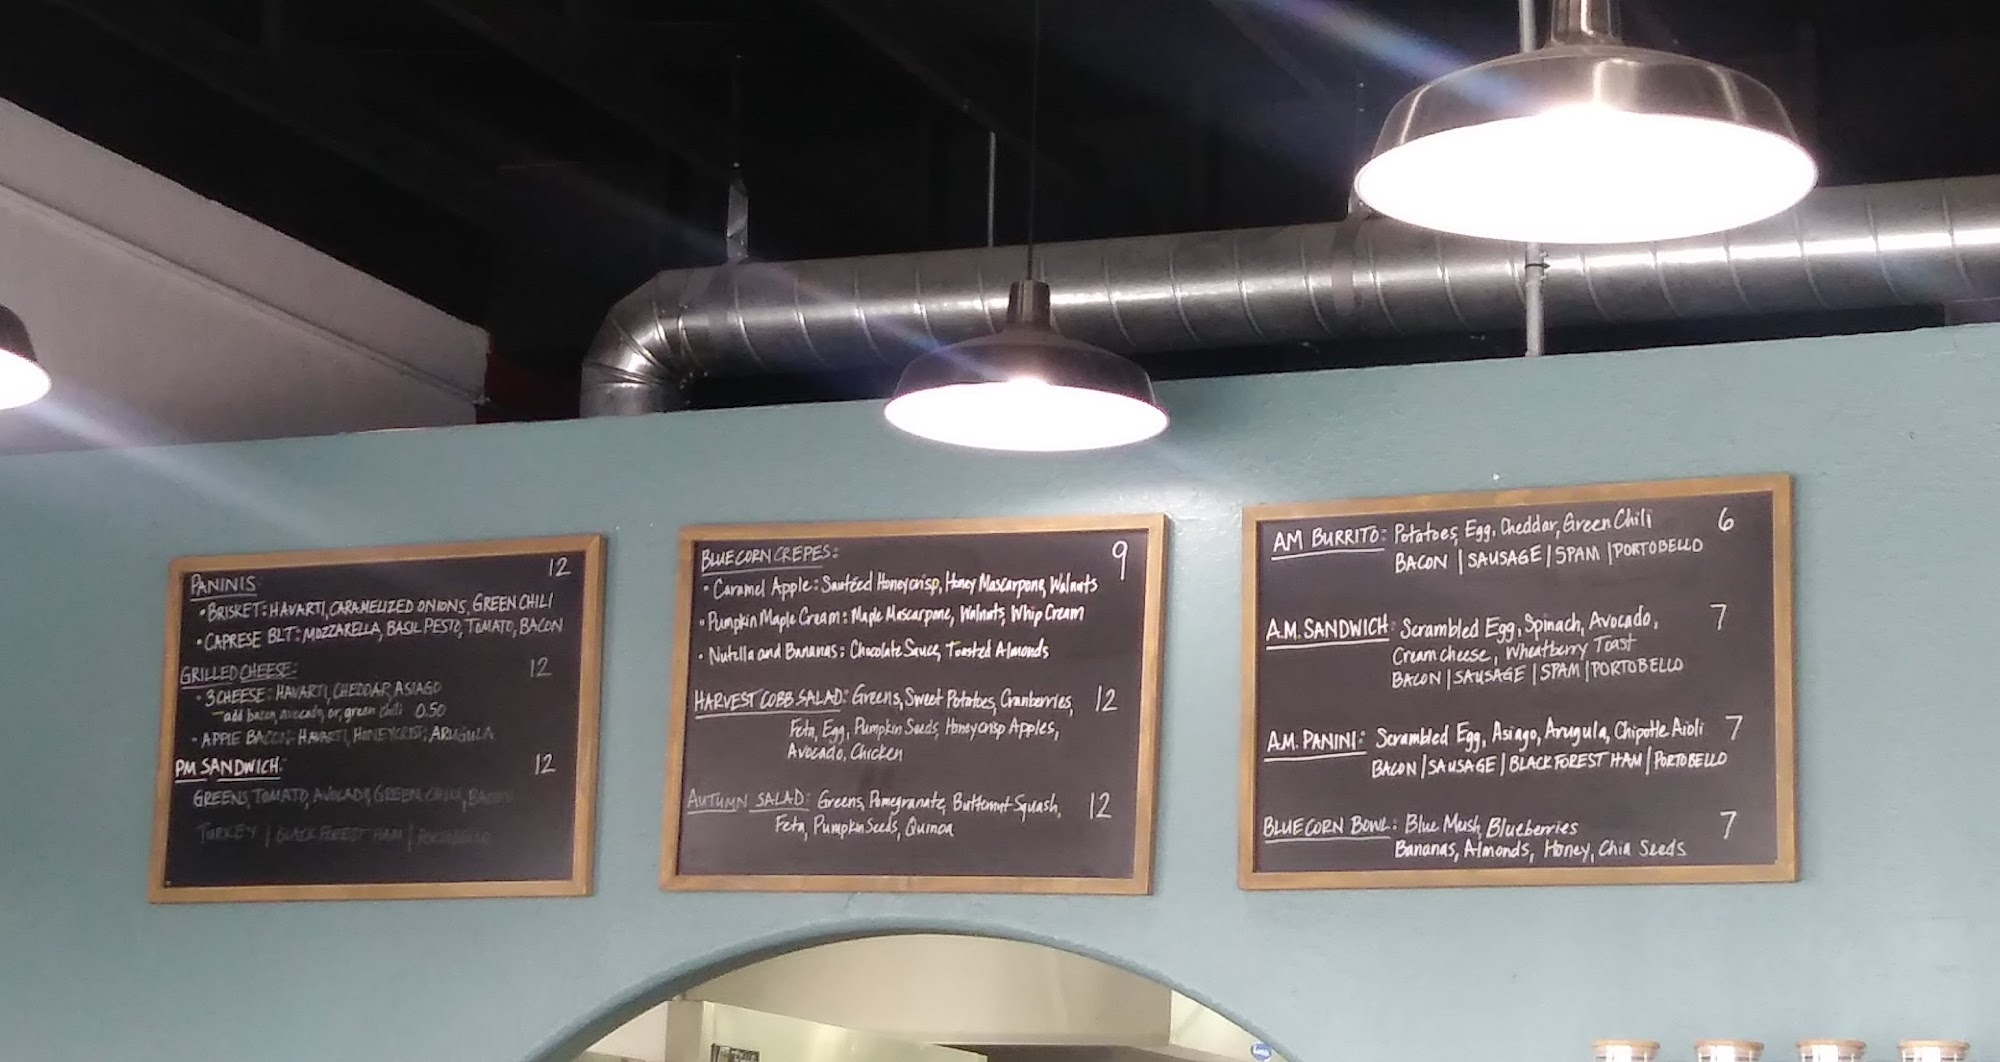 PANINIS 12
• BRISKET: HAVARTI, CARAMELIZED ONIONS, GREEN CHILI
• CAPRESE BLT: MOZZARELLA, BASIL PESTO, TOMATO, BACON
GRILLED CHEESE: 12
• 3 CHEESE: HAVARTI, CHEDDAR, ASIAGO
- add bacon, avocado, or, green chili 0.50
• APPLE BACON: HAVARTI, HONEYCRISP, ARUGULA
PM SANDWICH: 12
GREENS, TOMATO, AVOCADO, GREEN CHILI, BACON
TURKEY | BLACK FOREST HAM | PORTOBELLO
BLUE CORN CREPES: 9
• Caramel Apple: Sautéed Honeycrisp, Honey Mascarpone, Walnuts
• Pumpkin Maple Cream: Maple Mascarpone, Walnuts, Whip Cream
• Nutella and Bananas: Chocolate Sauce, Toasted Almonds
HARVEST COBB SALAD: Greens, Sweet Potatoes, Cranberries, 12
Feta, Egg, Pumpkin Seeds, Honeycrisp Apples,
Avocado, Chicken
AUTUMN SALAD: Greens, Pomegranate, Butternut Squash, 12
Feta, Pumpkin Seeds, Quinoa
AM BURRITO: Potatoes, Egg, Cheddar, Green Chili 6
BACON | SAUSAGE | SPAM | PORTOBELLO
A.M. SANDWICH: Scrambled Egg, Spinach, Avocado, 7
Cream cheese, Wheatberry Toast
BACON | SAUSAGE | SPAM | PORTOBELLO
A.M. PANINI: Scrambled Egg, Asiago, Arugula, Chipotle Aioli 7
BACON | SAUSAGE | BLACK FOREST HAM | PORTOBELLO
BLUE CORN BOWL: Blue Mush, Blueberries 7
Bananas, Almonds, Honey, Chia Seeds